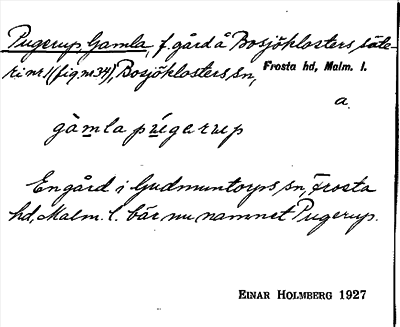 Pugerup, Gamla, f. gård å Bosjöklosters säte-
ri nr 1 (fig. nr 34), Bosjöklosters sn, Frosta hd, Malm. l.
a.
gàmla pùgerup
En gård i Gudmuntorps sn, Frosta
hd, Malm. l. bär nu namnet Pugerup.
EINAR HOLMBERG 1927